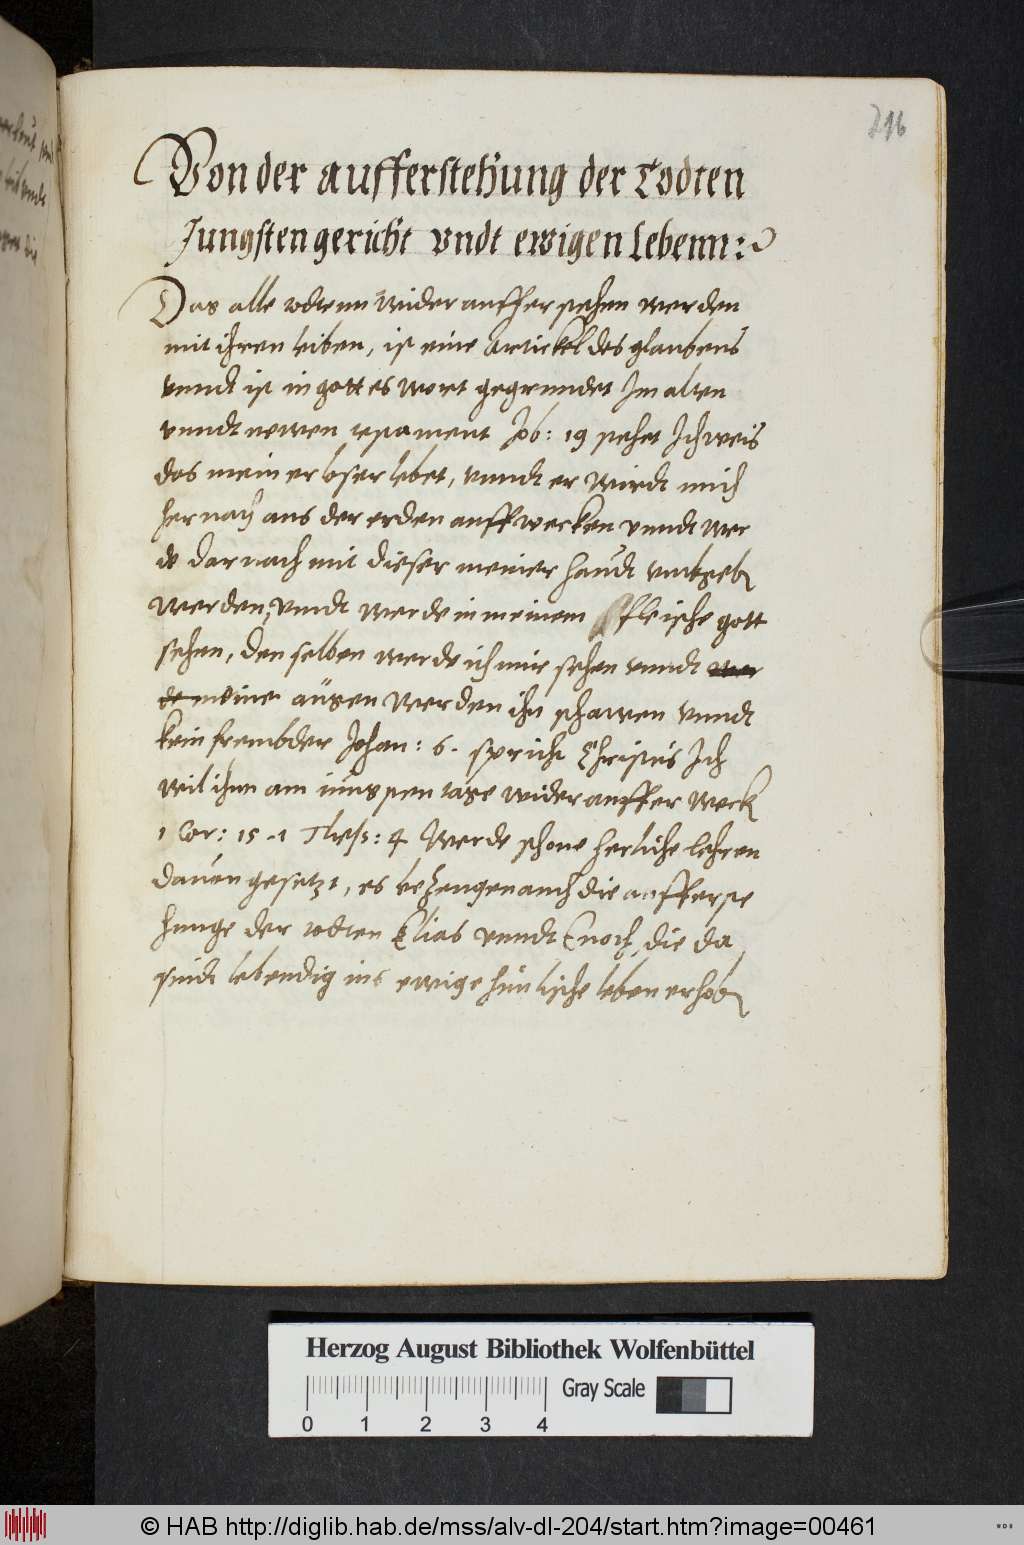 216
Von der aufferstehung der Todten
Jungsten gericht vndt ewigen Lebenn:
Das alle todtenn wider aufferstehen werden
mit ihren leiben, ist eine Artickel des glaubens
vnndt ist in gottes wort gegrundet Im alten
vnndt newen testament Job: 19 stehet Ich weis
das mein erloser lebet, vnndt er wirdt mich
hernach aus der erden auffwecken vnndt wer
de darnach mit dieser meiner haudt vmbgeben
werden, vnndt werde in meinem fleische gott
sehen, denselben werde ich mir sehen vnndt wer
de meine augen werden ihn schawen vnndt
kein frembder Johan: 6. spricht Christus Ich
wil ihnn am iungsten tage wider aufferweck
1 Cor: 15 . 1 Thess: 4 Werde schone herliche lehren
dauon gesetzt, es bezeugen auch die aufferste
hunge der todten Elias vnndt Enoch, die da
sindt lebendig ins ewige himlische leben erhoben
Herzog August Bibliothek Wolfenbüttel
0 1 2 3 4 Gray Scale
© HAB http://diglib.hab.de/mss/alv-dl-204/start.htm?image=00461